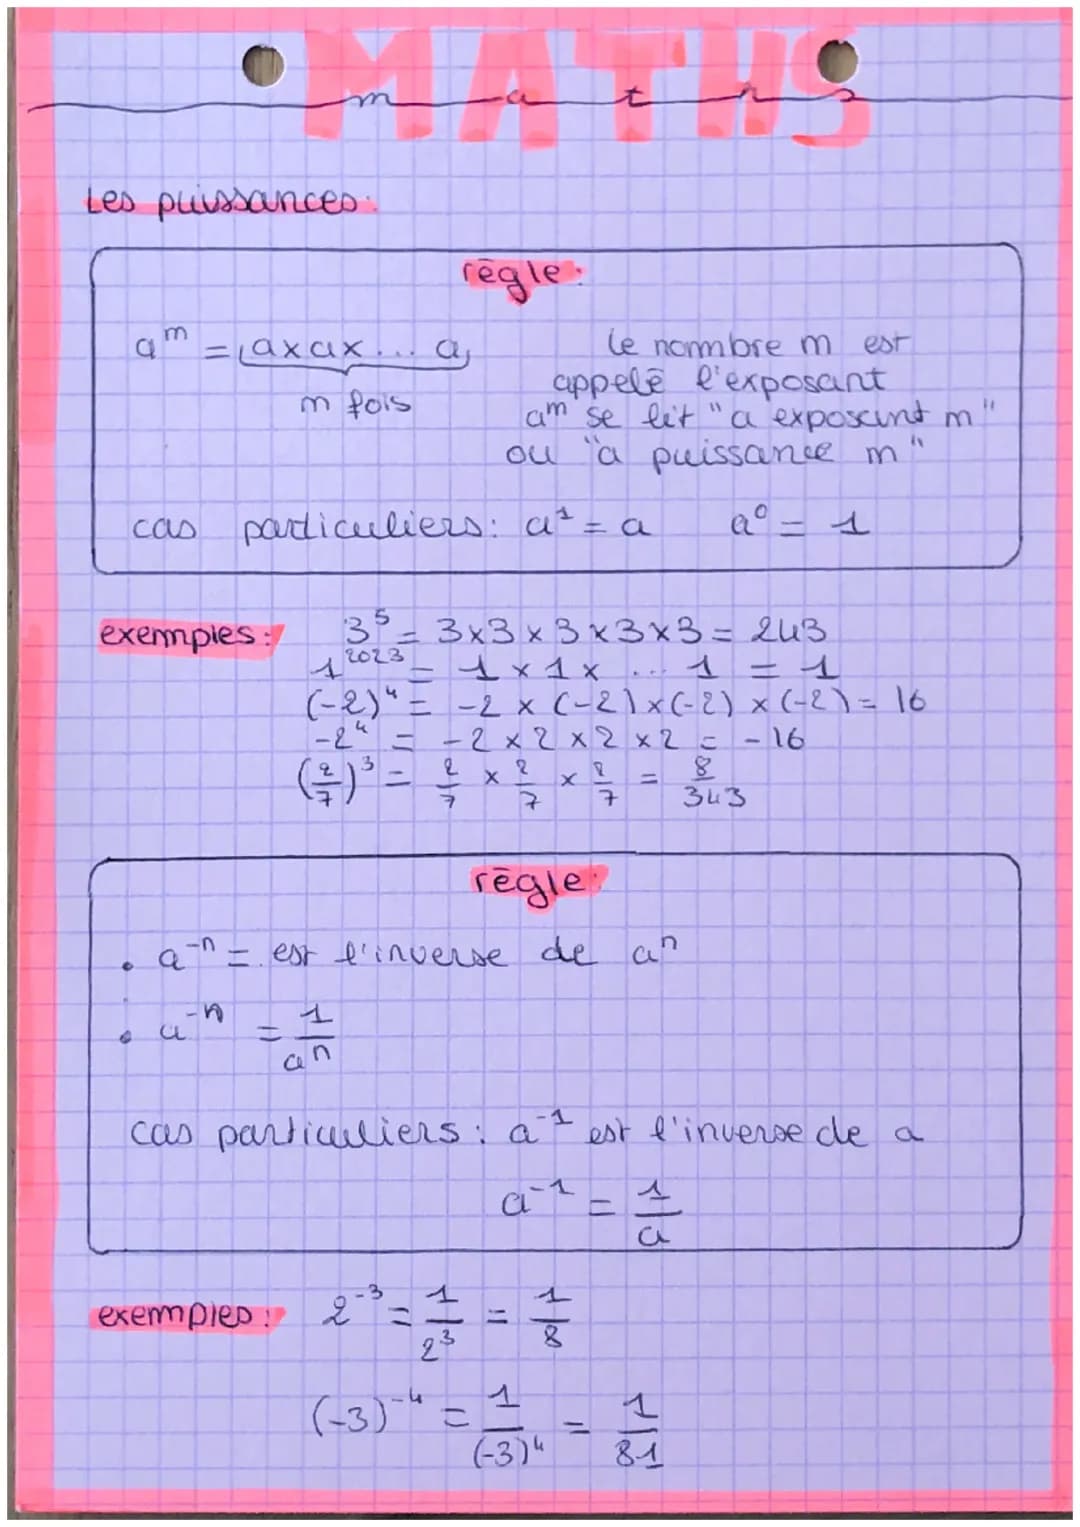 MATHS
maths
Les puissances:
règle:
a^m = a×a×... a
m fois
le nombre m est
appelé l'exposant
a^m se lit "a exposant m"
ou "a puissance m"
cas particuliers: a^1 = a a^0 = 1
exemples: 3^5 = 3×3×3×3×3 = 243
1^2023 = 1 × 1 × ... 1 = 1
(-2)^4 = -2 × (-2)×(-2)×(-2) = 16
-2^4 = -2×2×2×2 = -16
(2/7)^3 = 2/7 × 2/7 × 2/7 = 8/343
règle:
• a^-n = est l'inverse de a^n
• a^-n = 1/a^n
cas particuliers: a^-1 est l'inverse de a
a^-1 = 1/a
exemples: 2^-3 = 1/2^3 = 1/8
(-3)^-4 = 1/(-3)^4 = 1/81